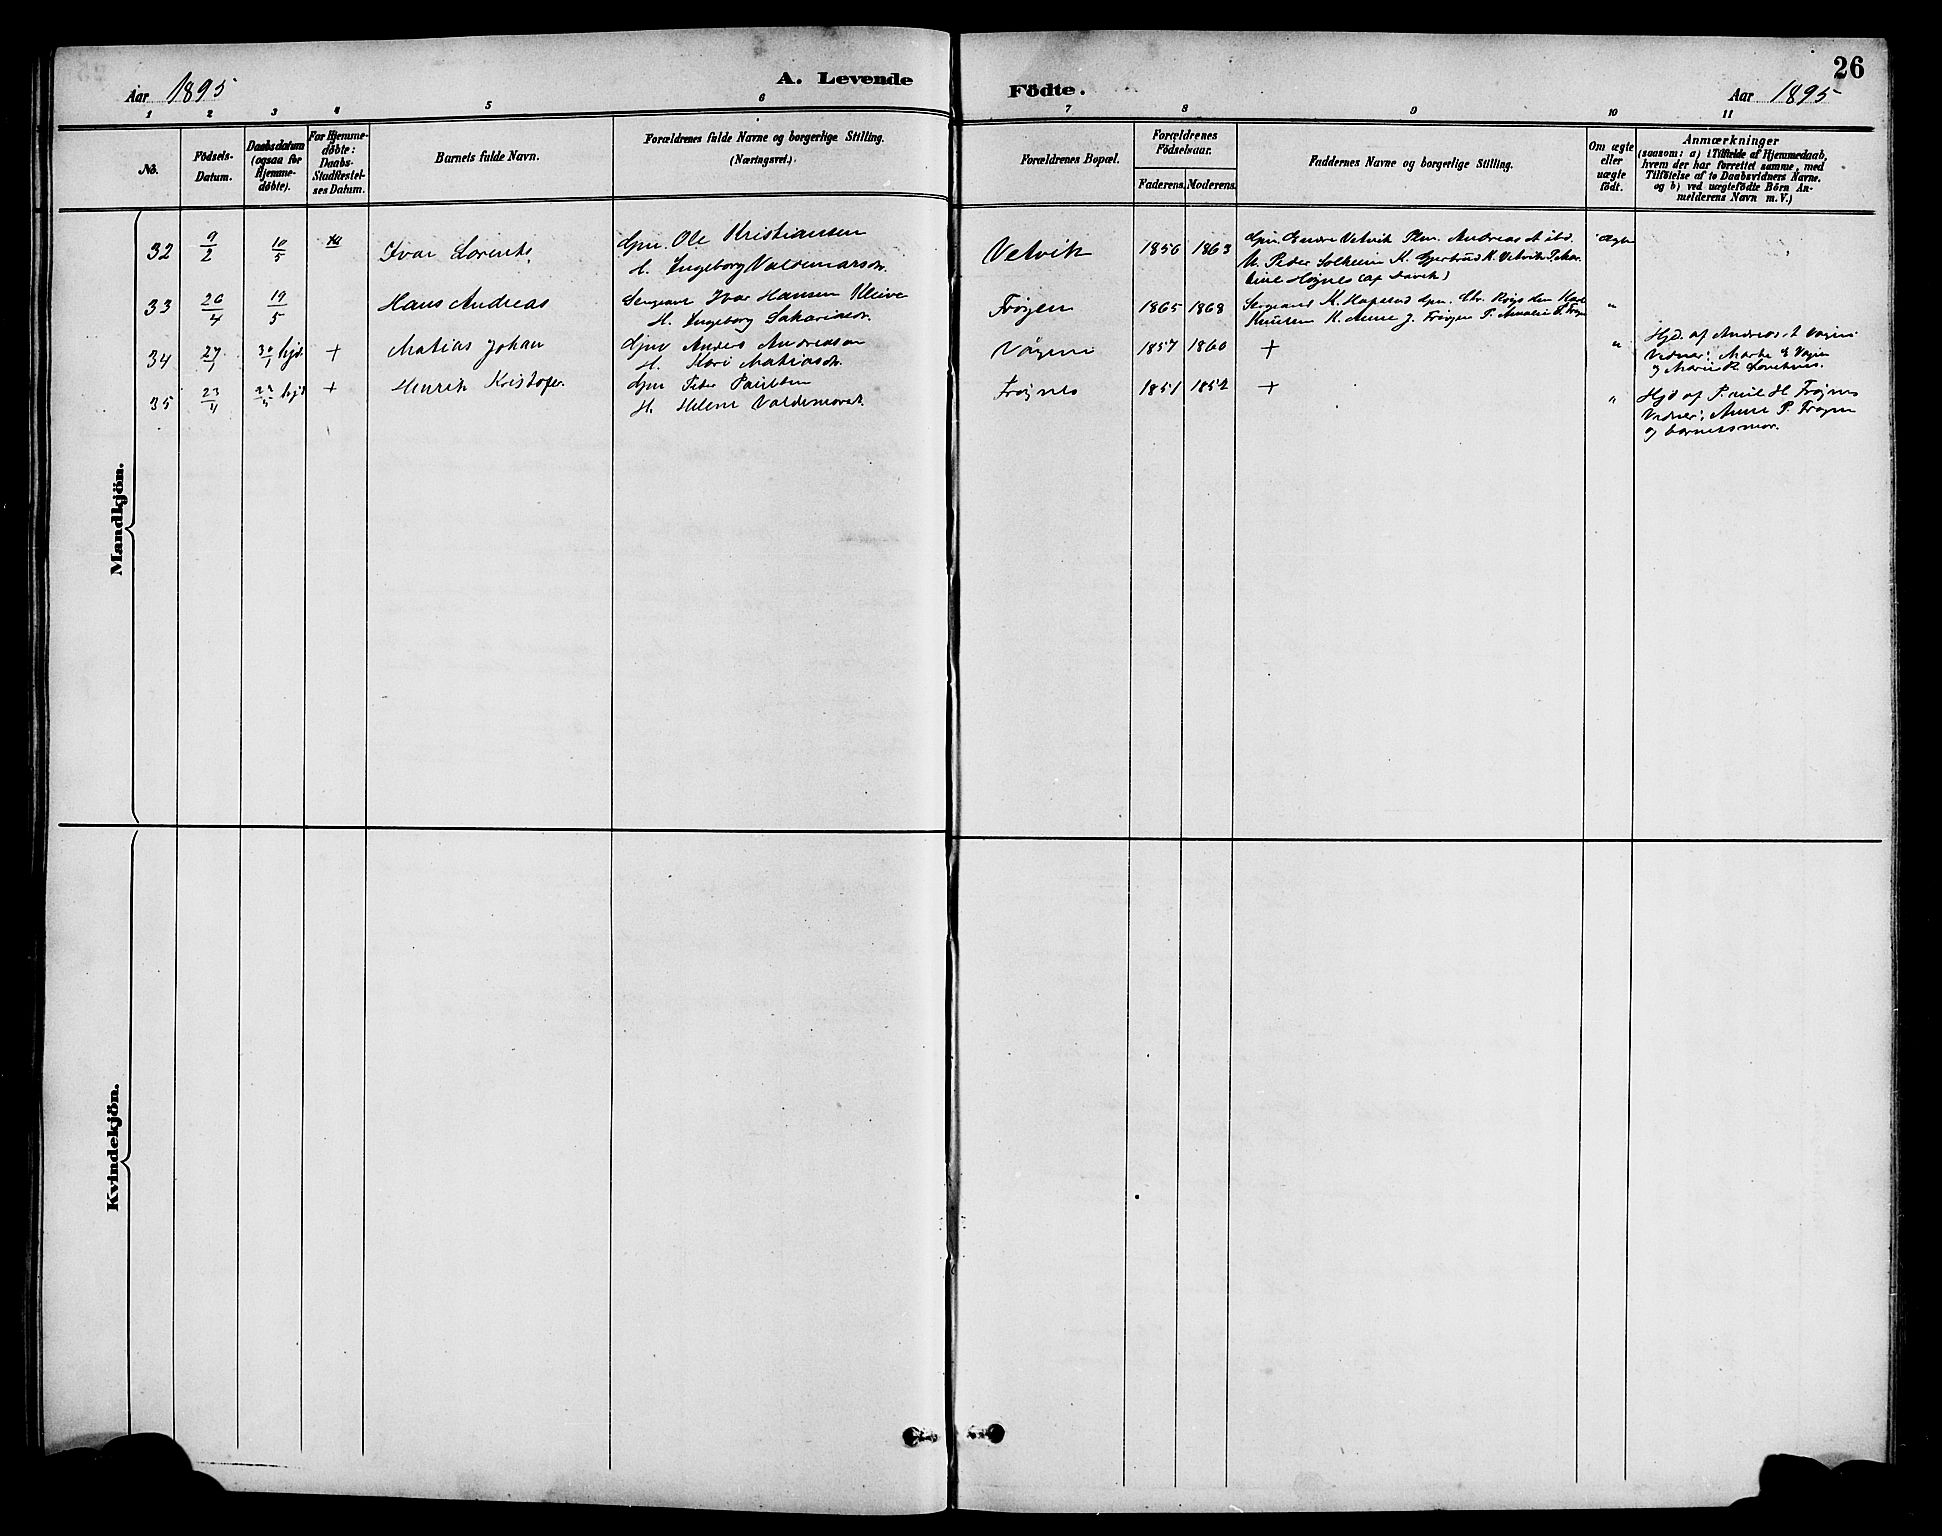 26
A. Levende Födte.
Aar 1895
Aar 1895
1 2 3 4 5 6 7 8 9 10 11
No.
Födsels-Datum.
Daabsdatum (ogsaa for Hjemme-døbte).
For Hjemme-døbte: Daabs-Stadfæstel-ses Datum.
Barnets fulde Navn.
Forældrenes fulde Navne og borgerlige Stilling.
(Næringsvei.)
Forældrenes Bopæl.
Forældrenes Födselsaar.
Faderens. Moderens.
Faddernes Navne og borgerlige Stilling.
Om ægte eller uægte födt.
Anmærkninger
(saasom: a) i Tilfælde af Hjemmedaab,
hvem der har forrettet samme, med
Tilföielse af to Daabsvidners Navne.
og b) ved uægtefödte Börn An-
melderens Navn m. V.)
Mandkjön.
32 9/2 10/5 Ivar Lorents Gjm. Ole Kristiansen
H. Ingeborg Valdemarsdr. Vetvik 1856 1863
Vetvik Pkm. Andreas ibd.
Peder Solheim K. Gjertrud K. Vetvik
Høgnes (af Davik) ægte
33 26/4 19/5 Hans Andreas Sergeant Ivar Hansen Kleive
H. Ingeborg Sakariasdr. Frøyen 1865 1868
Sergeant K. Hopeland Gjm. Chr.
Knutsen K. Anne J. Frøyen P. Amalie "
34 27/1 30/1 hjd. + Matias Johan Gjm Anders Andreasen
H. Kari Matiasdr. Vågene 1857 1860 + "
Hjd. af Andreas A Vågene
Vidner: Marte
og Marie
35 23/4 hjd + Henrik Kristofer. Gjm Peder Paulsen
H. Helene Valdemarsd. Frøynes 1851 1852 + "
Hjd af Paul H Frøynes
Vidner: Anne P. Frøyen
og barnets mor.
Kvindekjön.